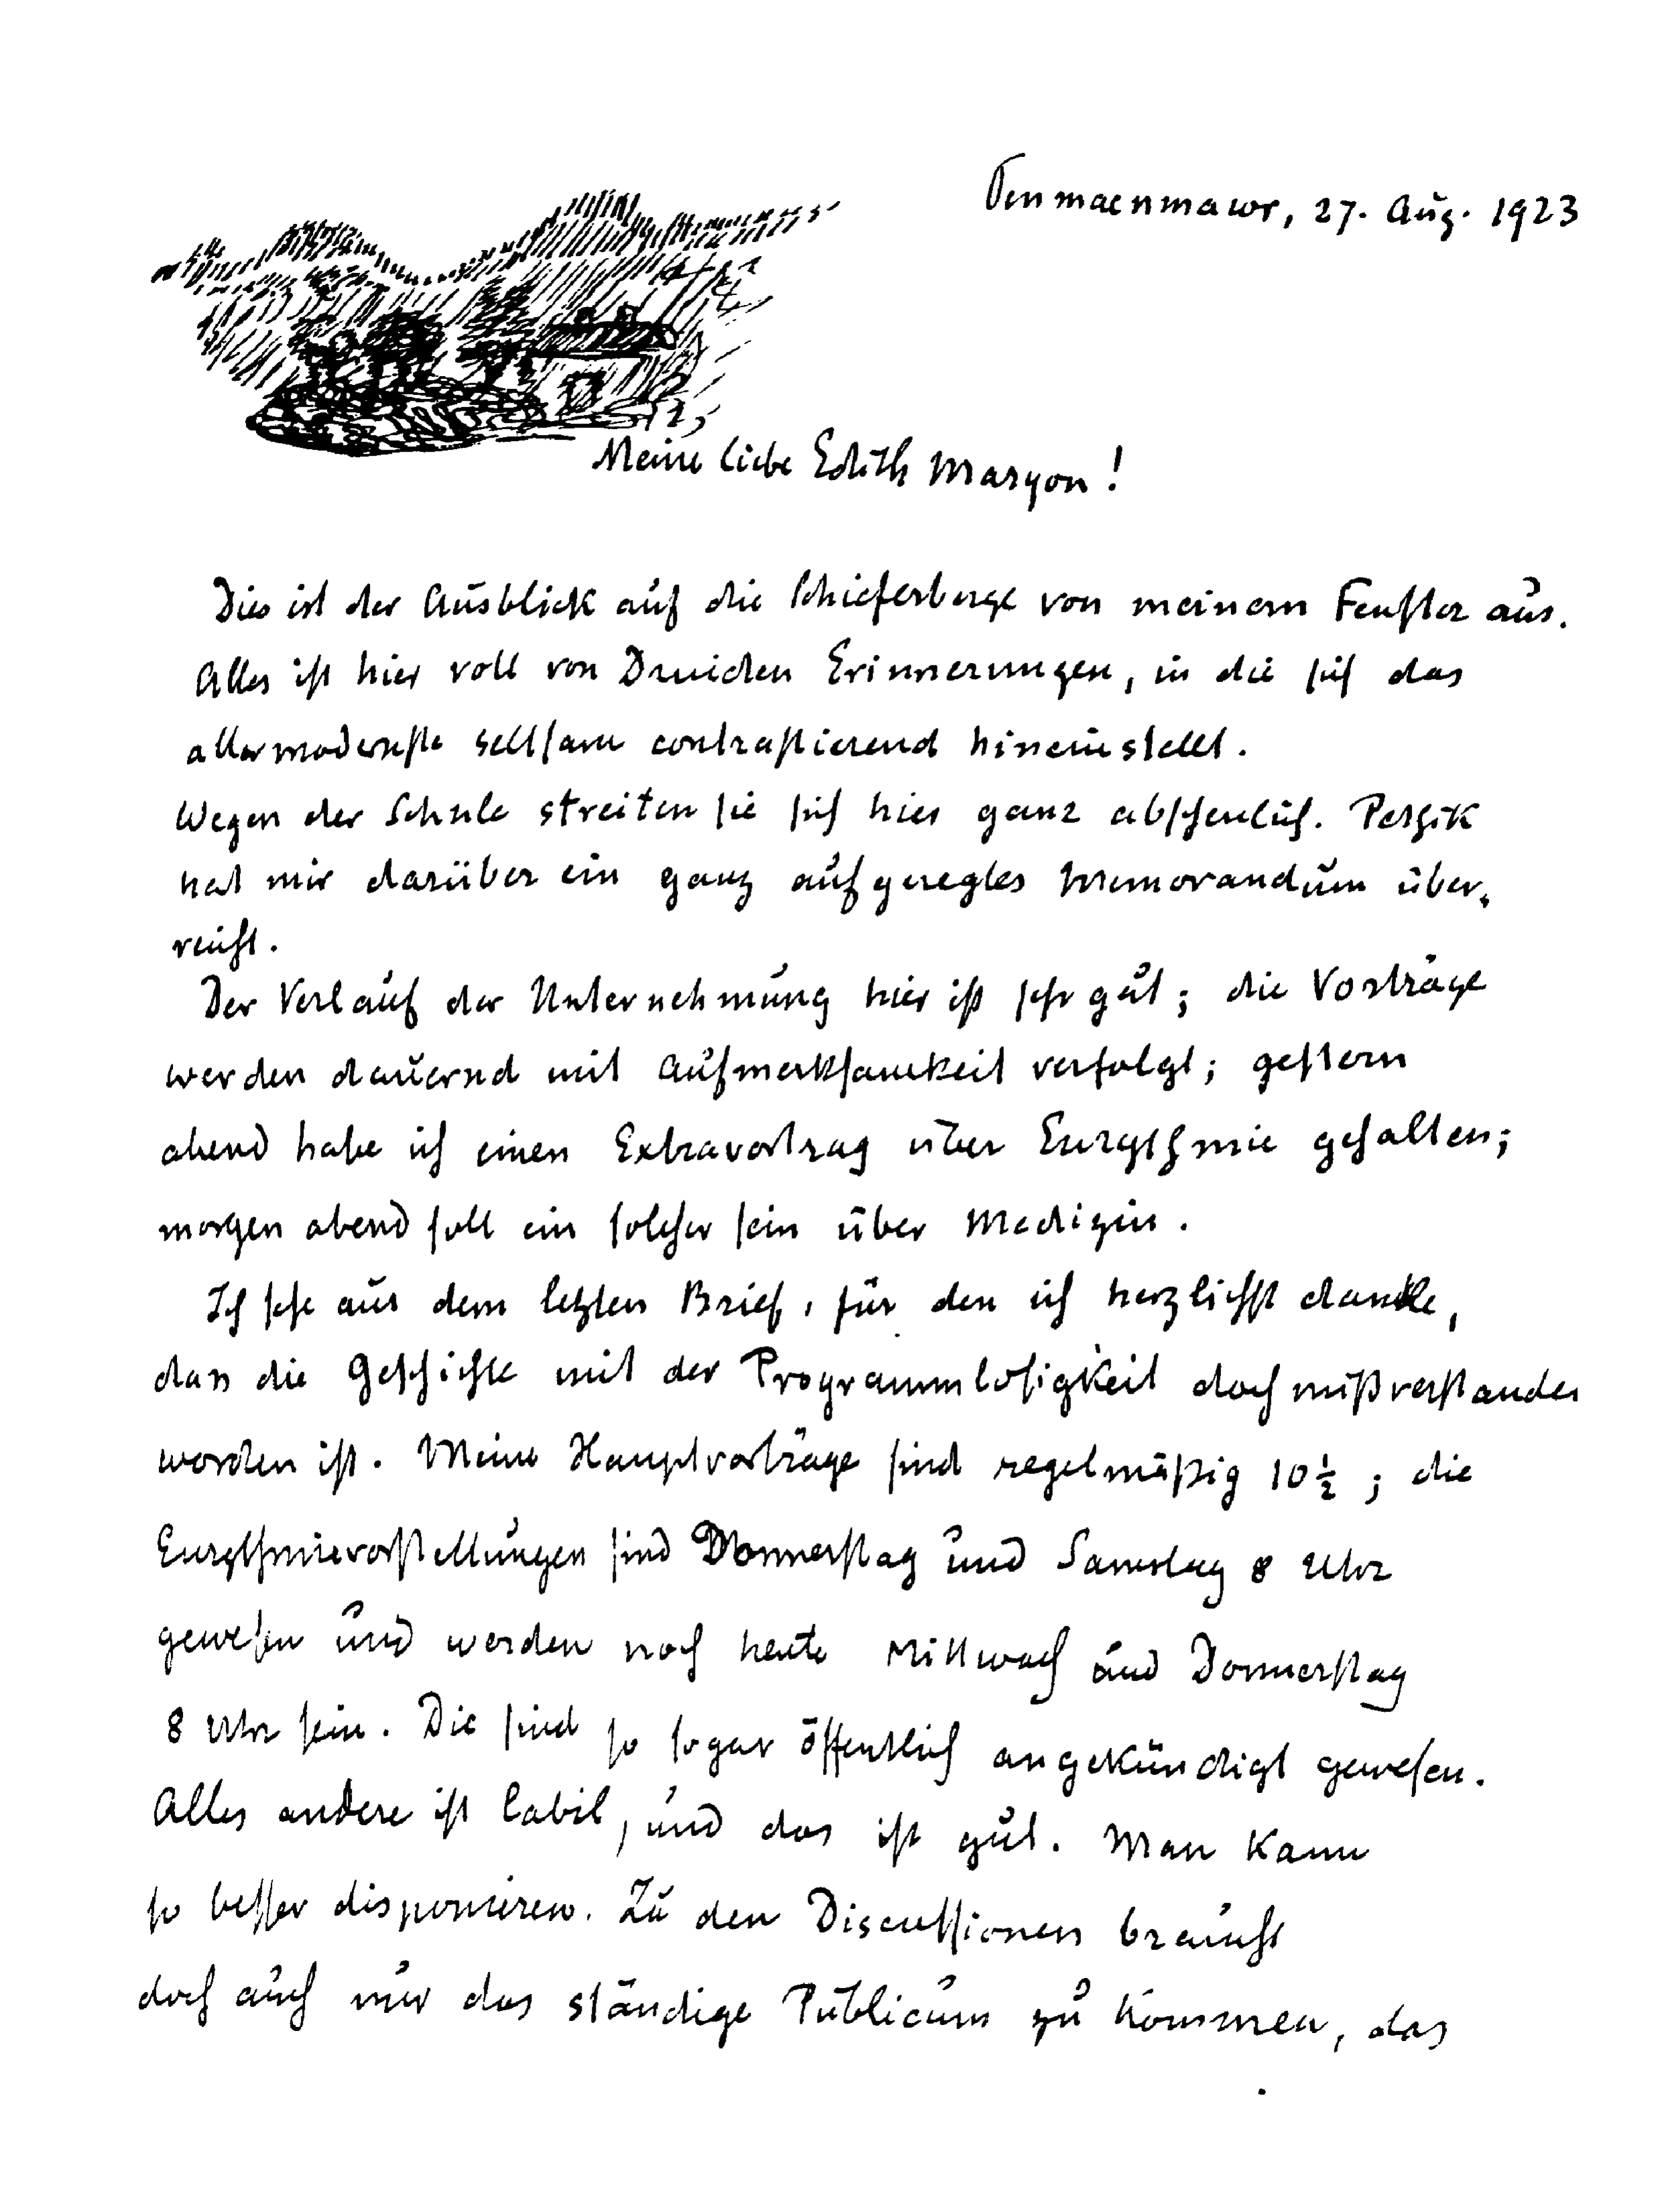 Penmaenmawr, 27. Aug. 1923
Meine liebe Edith Maryon!
Dies ist der Ausblick auf die Schieferberge von meinem Fenster aus.
Alles ist hier voll von Druiden Erinnerungen, in die sich das
allermodernste seltsam contrastierend hineinstellt.
Wegen der Schule streiten sie sich hier ganz abscheulich.
hat mir darüber ein ganz aufgeregtes Memorandum über-
reicht.
Der Verlauf der Unternehmung hier ist sehr gut; die Vorträge
werden dauernd mit Aufmerksamkeit verfolgt; gestern
abend habe ich einen Extravortrag über Eurythmie gehalten;
morgen abend soll ein solcher sein über Medizin.
Ich sehe aus dem letzten Brief, für den ich herzlichst danke,
dass die Geschichte mit der Programmlosigkeit doch mißverstanden
worden ist. Meine Hauptvorträge sind regelmäßig 10½; die
Eurythmievorstellungen sind Donnerstag und Samstag 8 Uhr
gewesen und werden noch heute Mittwoch und Donnerstag
8 Uhr sein. Die sind so sogar öffentlich angekündigt gewesen.
Alles andere ist labil, und das ist gut. Man kann
so besser disponieren. Zu den Discussionen braucht
doch auch nur das ständige Publicum zu kommen, das